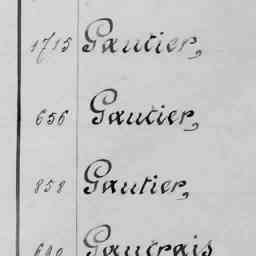 1715 Gautier,
656 Gautier,
858 Gautier,
690 Gautrais